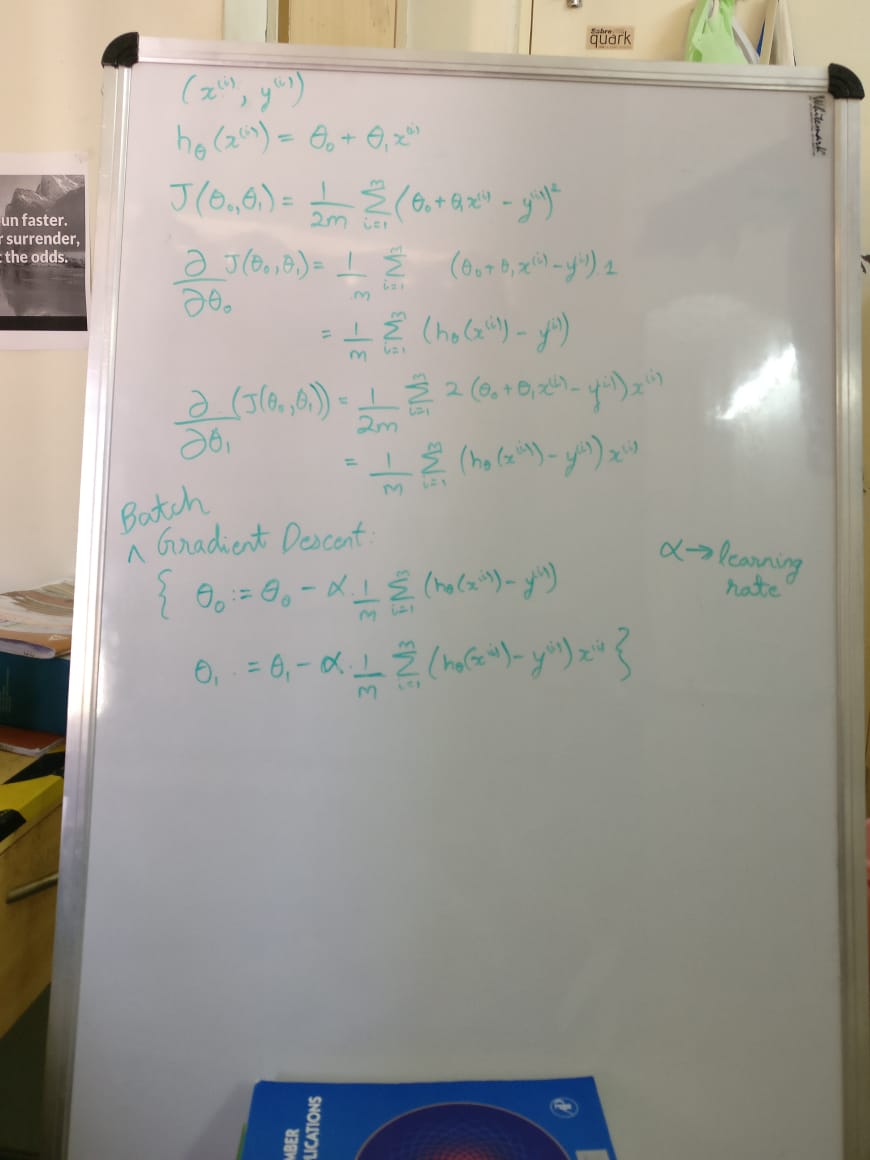 Sabre
quark
Whitemark
un faster.
r surrender,
t the odds.
(x⁽ⁱ⁾, y⁽ⁱ⁾)
h_θ(x⁽ⁱ⁾) = θ₀ + θ₁x⁽ⁱ⁾
J(θ₀,θ₁) = 1/2m Σᵢ₌₁ᵐ (θ₀ + θ₁x⁽ⁱ⁾ - y⁽ⁱ⁾)²
∂/∂θ₀ J(θ₀,θ₁) = 1/m Σᵢ₌₁ᵐ (θ₀ + θ₁x⁽ⁱ⁾ - y⁽ⁱ⁾).1
= 1/m Σᵢ₌₁ᵐ (h_θ(x⁽ⁱ⁾) - y⁽ⁱ⁾)
∂/∂θ₁ (J(θ₀,θ₁)) = 1/2m Σᵢ₌₁ᵐ 2(θ₀ + θ₁x⁽ⁱ⁾ - y⁽ⁱ⁾)x⁽ⁱ⁾
= 1/m Σᵢ₌₁ᵐ (h_θ(x⁽ⁱ⁾) - y⁽ⁱ⁾)x⁽ⁱ⁾
Batch
^ Gradient Descent:
{ θ₀ := θ₀ - α.1/m Σᵢ₌₁ᵐ (h_θ(x⁽ⁱ⁾) - y⁽ⁱ⁾)
θ₁ . = θ₁ - α.1/m Σᵢ₌₁ᵐ (h_θ(x⁽ⁱ⁾) - y⁽ⁱ⁾)x⁽ⁱ⁾ }
α → learning
rate
MBER
LICATIONS